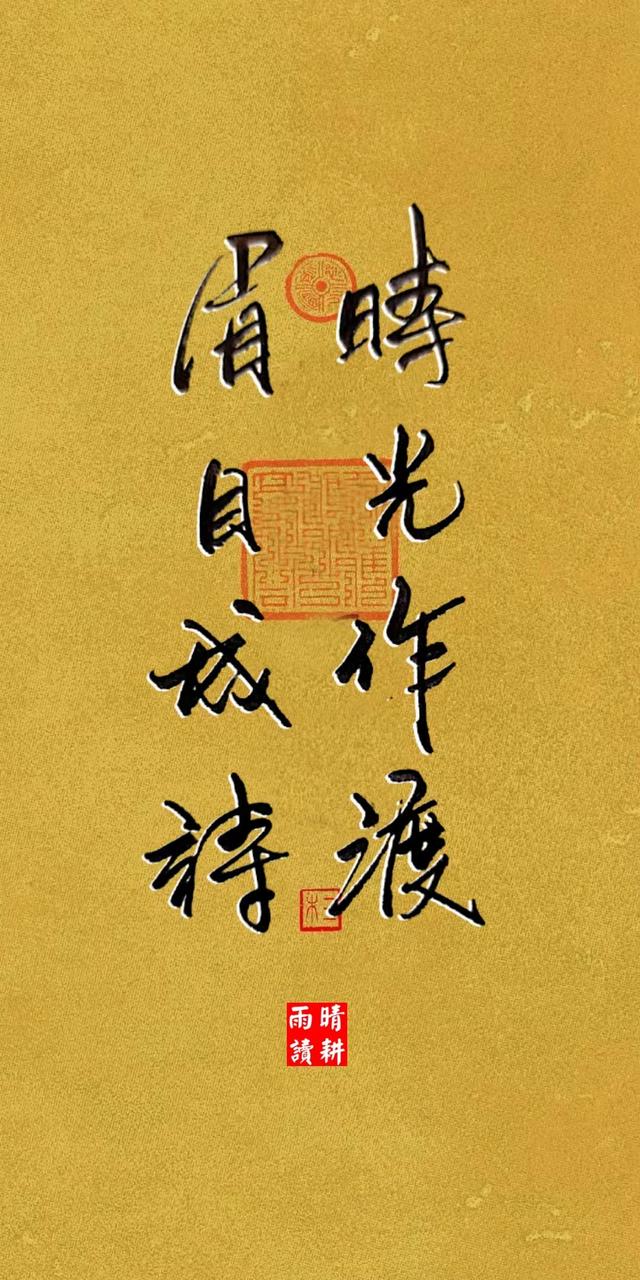 時光作渡
眉目成詩
晴耕
雨讀